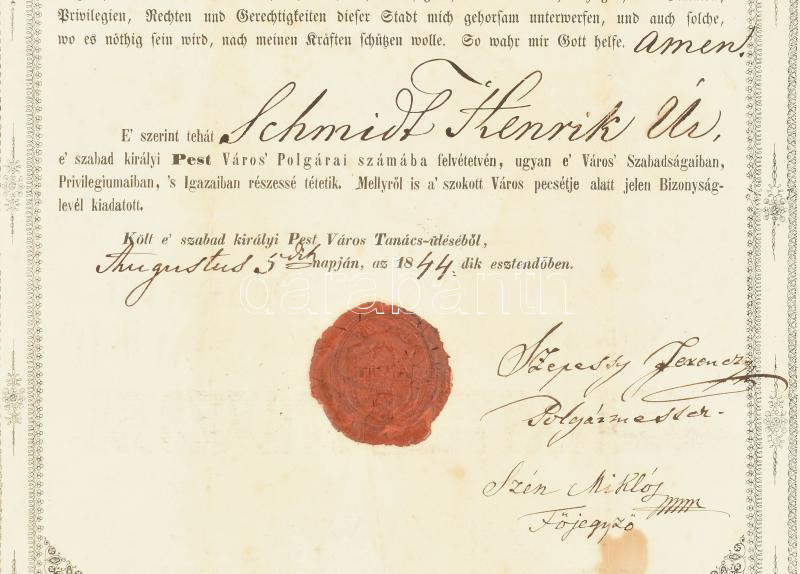 Privilegien, Rechten und Gerechtigkeiten dieser Stadt mich gehorsam unterwerfen, und auch solche,
wo es nöthig sein wird, nach meinen Kräften schützen wolle. So wahr mir Gott helfe. Amen!
E' szerint tehát Schmidt Henrik Úr,
e' szabad királyi Pest Város' Polgárai számába felvétetvén, ugyan e' Város' Szabadságaiban,
Privilegiumaiban, 's Igazaiban részessé tétetik. Mellyről is a' szokott Város pecsétje alatt jelen Bizonyság-
levél kiadatott.
Költ e' szabad királyi Pest Város Tanács-üléséből,
Augustus 5dik napján, az 1844. dik esztendőben.
darabanth
Szepessy Ferencz
Polgármester.
Szén Miklós
Főjegyző